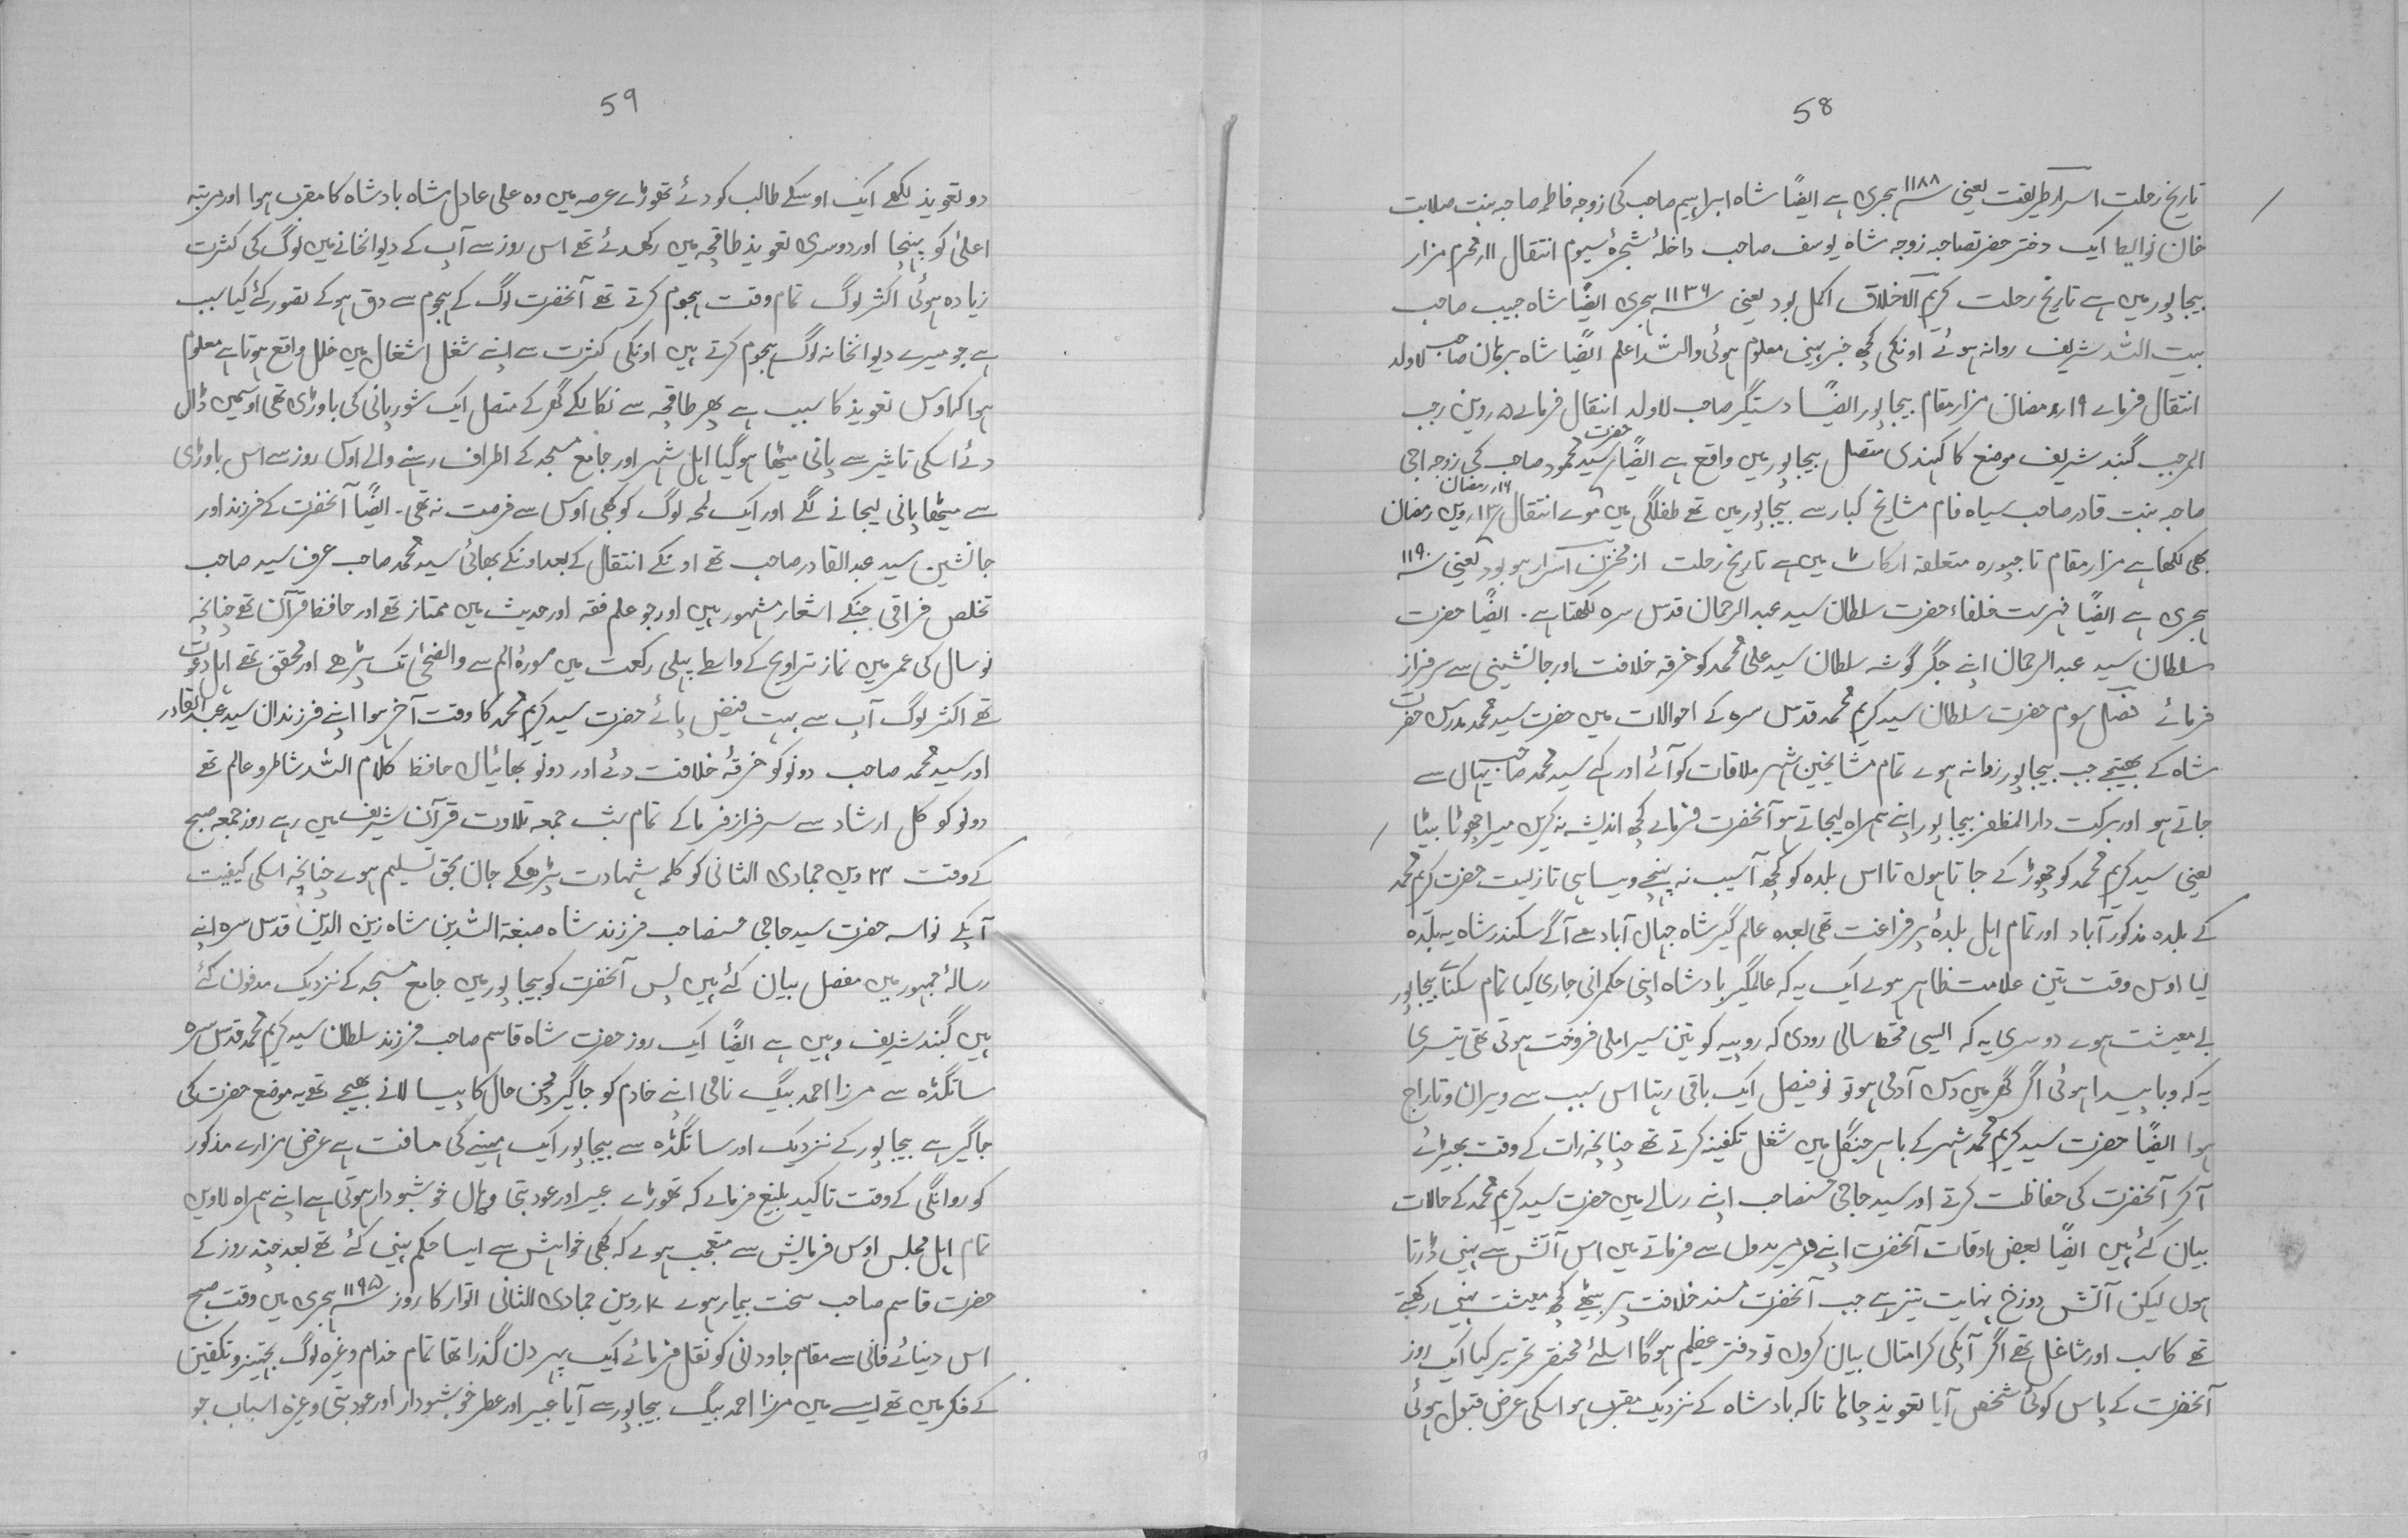 58
تاریخ رحلت اسرار طریقت یعنی ۱۱۸۸ سنہ ہجری ہے ایضًا شاہ ابراہیم صاحب کی زوجہ فاطمہ صاحبہ بنت صلابت
خان نوایط ایک دختر حضر تصاحبہ زوجہ شاہ یوسف صاحب داخلۂ شجرۂ سیوم انتقال ۱۱ر محرم مزار
بیجاپور میں ہے تاریخ رحلت کریم الاخلاق اکمل بود یعنی ۱۱۳۶ سنہ ہجری ایضًا شاہ حبیب صاحب
بیت اللہ شریف روانہ ہوئے اونکی کچھ خبر نہیں معلوم ہوئی واللہ اعلم ایضًا شاہ برہان صاحب لاولد
انتقال فرمائے ۱۹ر رمضان مزار مقام بیجاپور ایضًا دستگیر صاحب لاولد انتقال فرمائے ۵ روین رجب
المرجب گنبد شریف موضع کاکہندی متصل بیجاپور میں واقع ہے ایضًا حضرت سید محمود صاحب کی زوجہ اجی
صاحبہ بنت قادر صاحب سیاہ فام مشایخ کبار سے بیجاپور میں تھے طفلگی میں موے انتقال ۱۶ر رمضان ۱۳ روین رمضان
بھی لکھا ہے مزار مقام تاجپورہ متعلقہ ارکاٹ میں ہے تاریخ رحلت از مخزن اسرار ہو بود یعنی ۱۱۹۰ سنہ
ہجری ہے ایضًا فہرست خلفاء حضرت سلطان سید عبد الرحمان قدس سرہ لکھتا ہے۔ ایضًا حضرت
سلطان سید عبد الرحمان اپنے جگر گوشہ سلطان سید علی محمد کو خرقہ خلافت اور جانشینی سے سرفراز
فرمائے فصل سوم حضرت سلطان سید کریم محمد قدس سرہ کے احوالات میں حضرت سید محمد مدرس حضرت
شاہ کے بھتیجے جب بیجاپور روانہ ہوے تمام مشایخین شہر ملاقات کو آئے اور کہے سید محمد صاحب یہاں سے
جاتے ہو اور برکت دار المظفر بیجاپور اپنے ہمراہ لیجاتے ہو آنحضرت فرمائے کچھ اندیشہ نہ کریں میرا چھوٹا بیٹا
یعنی سید کریم محمد کو چھوڑ کے جاتا ہوں تا اس بلدہ کو کچھ آسیب نہ پہنچے ویسا ہی تا زیست حضرت کریم محمد
کے بلدہ مذکور آباد اور تمام اہل بلدۂ پر فراغت تھی بعدہ عالم گیر شاہ جہاں آباد سے آگے سکندر شاہ یہ بلدہ
لیا اوس وقت تین علامت ظاہر ہوے ایک یہ کہ عالمگیر بادشاہ اپنی حکمرانی جاری کیا تمام سکنائے بیجاپور
بے معیشت ہوے دوسری یہ کہ ایسی قحط سالی رودی کہ روپیہ کو تین سیر املی فروخت ہوتی تھی تیسری
یہ کہ وبا پیدا ہوئی اگر گھر میں دس آدمی ہو تو نو فیصل ایک باقی رہتا اس سبب سے ویران و تاراج
ہوا ایضًا حضرت سید کریم محمد شہر کے باہر جنگل میں شغل تکفینہ کرتے تھے چنانچہ رات کے وقت بھیڑئے
آ کر آنحضرت کی حفاظت کرتے اور سید حاجی حسنصاحب اپنے رسالے میں حضرت سید کریم محمد کے حالات
بیان کئے ہیں ایضًا بعض اوقات آنحضرت اپنے مریدوں سے فرماتے میں اس آتش سے نہیں ڈرتا
ہوں لیکن آتش دوزخ نہایت تیز ہے جب آنحضرت مسند خلافت پر بیٹھے کچھ معیشت نہیں رکھتے
تھے کاسب اور شاغل تھے اگر آپکی کرامتاں بیان کروں تو دفتر عظیم ہوگا اسلئے مختصر تحریر کیا ایک روز
آنحضرت کے پاس کوئی شخص آیا تعویذ چاہا تاکہ بادشاہ کے نزدیک مقرب ہو اسکی عرض قبول ہوئی
59
دو تعویذ لکھے ایک اوسکے طالب کو دئے تھوڑے عرصہ میں وہ علی عادل شاہ بادشاہ کا مقرب ہوا اور مرتبہ
اعلیٰ کو پہنچا اور دوسری تعویذ طاقچہ میں رکھدئے تھے اس روز سے آپ کے دیوانخانے میں لوگ کی کثرت
زیادہ ہوئی اکثر لوگ تمام وقت ہجوم کرتے تھے آنحضرت لوگ کے ہجوم سے دق ہو کے تصور کئے کیا سبب
ہے جو میرے دیوانخانہ لوگ ہجوم کرتے ہیں اونکی کثرت سے اپنے شغل اشغال میں خلل واقع ہوتا ہے معلوم
ہوا کہ اوس تعویذ کا سبب ہے پھر طاقچہ سے نکالکے گھر کے متصل ایک شور پانی کی باوڑی تھی اوسمیں ڈال
دئے اسکی تاثیر سے پانی میٹھا ہوگیا اہل شہر اور جامع مسجد کے اطراف رہنے والے اوس روز سے اس باوڑی
سے میٹھا پانی لیجانے لگے اور ایک لمحہ لوگ کو بھی اوس سے فرصت نہ تھی۔ ایضًا آنحضرت کے فرزند اور
جانشین سید عبد القادر صاحب تھے اونکے انتقال کے بعد اونکے بھائی سید محمد صاحب عرف سید صاحب
تخلص فراقی جنکے اشعار مشہور ہیں اور جو علم فقہ اور حدیث میں ممتاز تھے اور حافظ قرآن تھے چنانچہ
نو سال کی عمر میں نماز تراویح کے واسطے پہلی رکعت میں سورۂ الم سے والضحیٰ تک پڑھے اور محقق تھے اہل دعوت
تھے اکثر لوگ آپ سے بہت فیض پائے حضرت سید کریم محمد کا وقت آخر ہوا اپنے فرزندان سید عبد القادر
اور سید محمد صاحب دونو کو خرقۂ خلافت دئے اور دونو بھائیاں حافظ کلام اللہ شاطر و عالم تھے
دونو کو کل ارشاد سے سرفراز فرما کے تمام شب جمعہ تلاوت قرآن شریف میں رہے روز جمعہ صبح
کے وقت ۲۳ ویں جمادی الثانی کو کلمہ شہادت پڑھکے جان بحق تسلیم ہوے چنانچہ اسکی کیفیت
آپکے نواسہ حضرت سید حاجی حسنصاحب فرزند شاہ صبغۃ اللہ بن شاہ زین الدین قدس سرہ اپنے
رسالۂ جمہور میں مفصل بیان کئے ہیں پس آنحضرت کو بیجاپور میں جامع مسجد کے نزدیک مدفون کئے
ہیں گنبد شریف وہیں ہے ایضًا ایک روز حضرت شاہ قاسم صاحب فرزند سلطان سید کریم محمد قدس سرہ
ساتگڈہ سے مرزا احمد بیگ نامی اپنے خادم کو جاگیر حال کا پیسا لانے بھیجے تھے یہ موضع حضرت کی
جاگیر ہے بیجاپور کے نزدیک اور ساتگڈہ سے بیجاپور ایک مہینے کی مسافت ہے غرض مزارے مذکور
کو روانگی کے وقت تاکید بلیغ فرمائے کہ تھوڑے عبیر اور عود بتی وہاں خوشبودار ہوتی ہے اپنے ہمراہ لاویں
تمام اہل مجلس اوس فرمایش سے متعجب ہوے کہ کبھی خواہش سے ایسا حکم نہیں کئے تھے بعد چند روز کے
حضرت قاسم صاحب سخت بیمار ہوے ۷ روین جمادی الثانی اتوار کا روز ۱۱۹۵ سنہ ہجری میں وقت صبح
اس دنیائے فانی سے مقام جاودانی کو نقل فرمائے ایک پہر دن گذرا تھا تمام خدام وغیرہ لوگ تجہیز و تکفین
کے فکر میں تھے ایسے میں مرزا احمد بیگ بیجاپور سے آیا عبیر اور عطر خوشبودار اور عود بتی وغیرہ اسباب جو